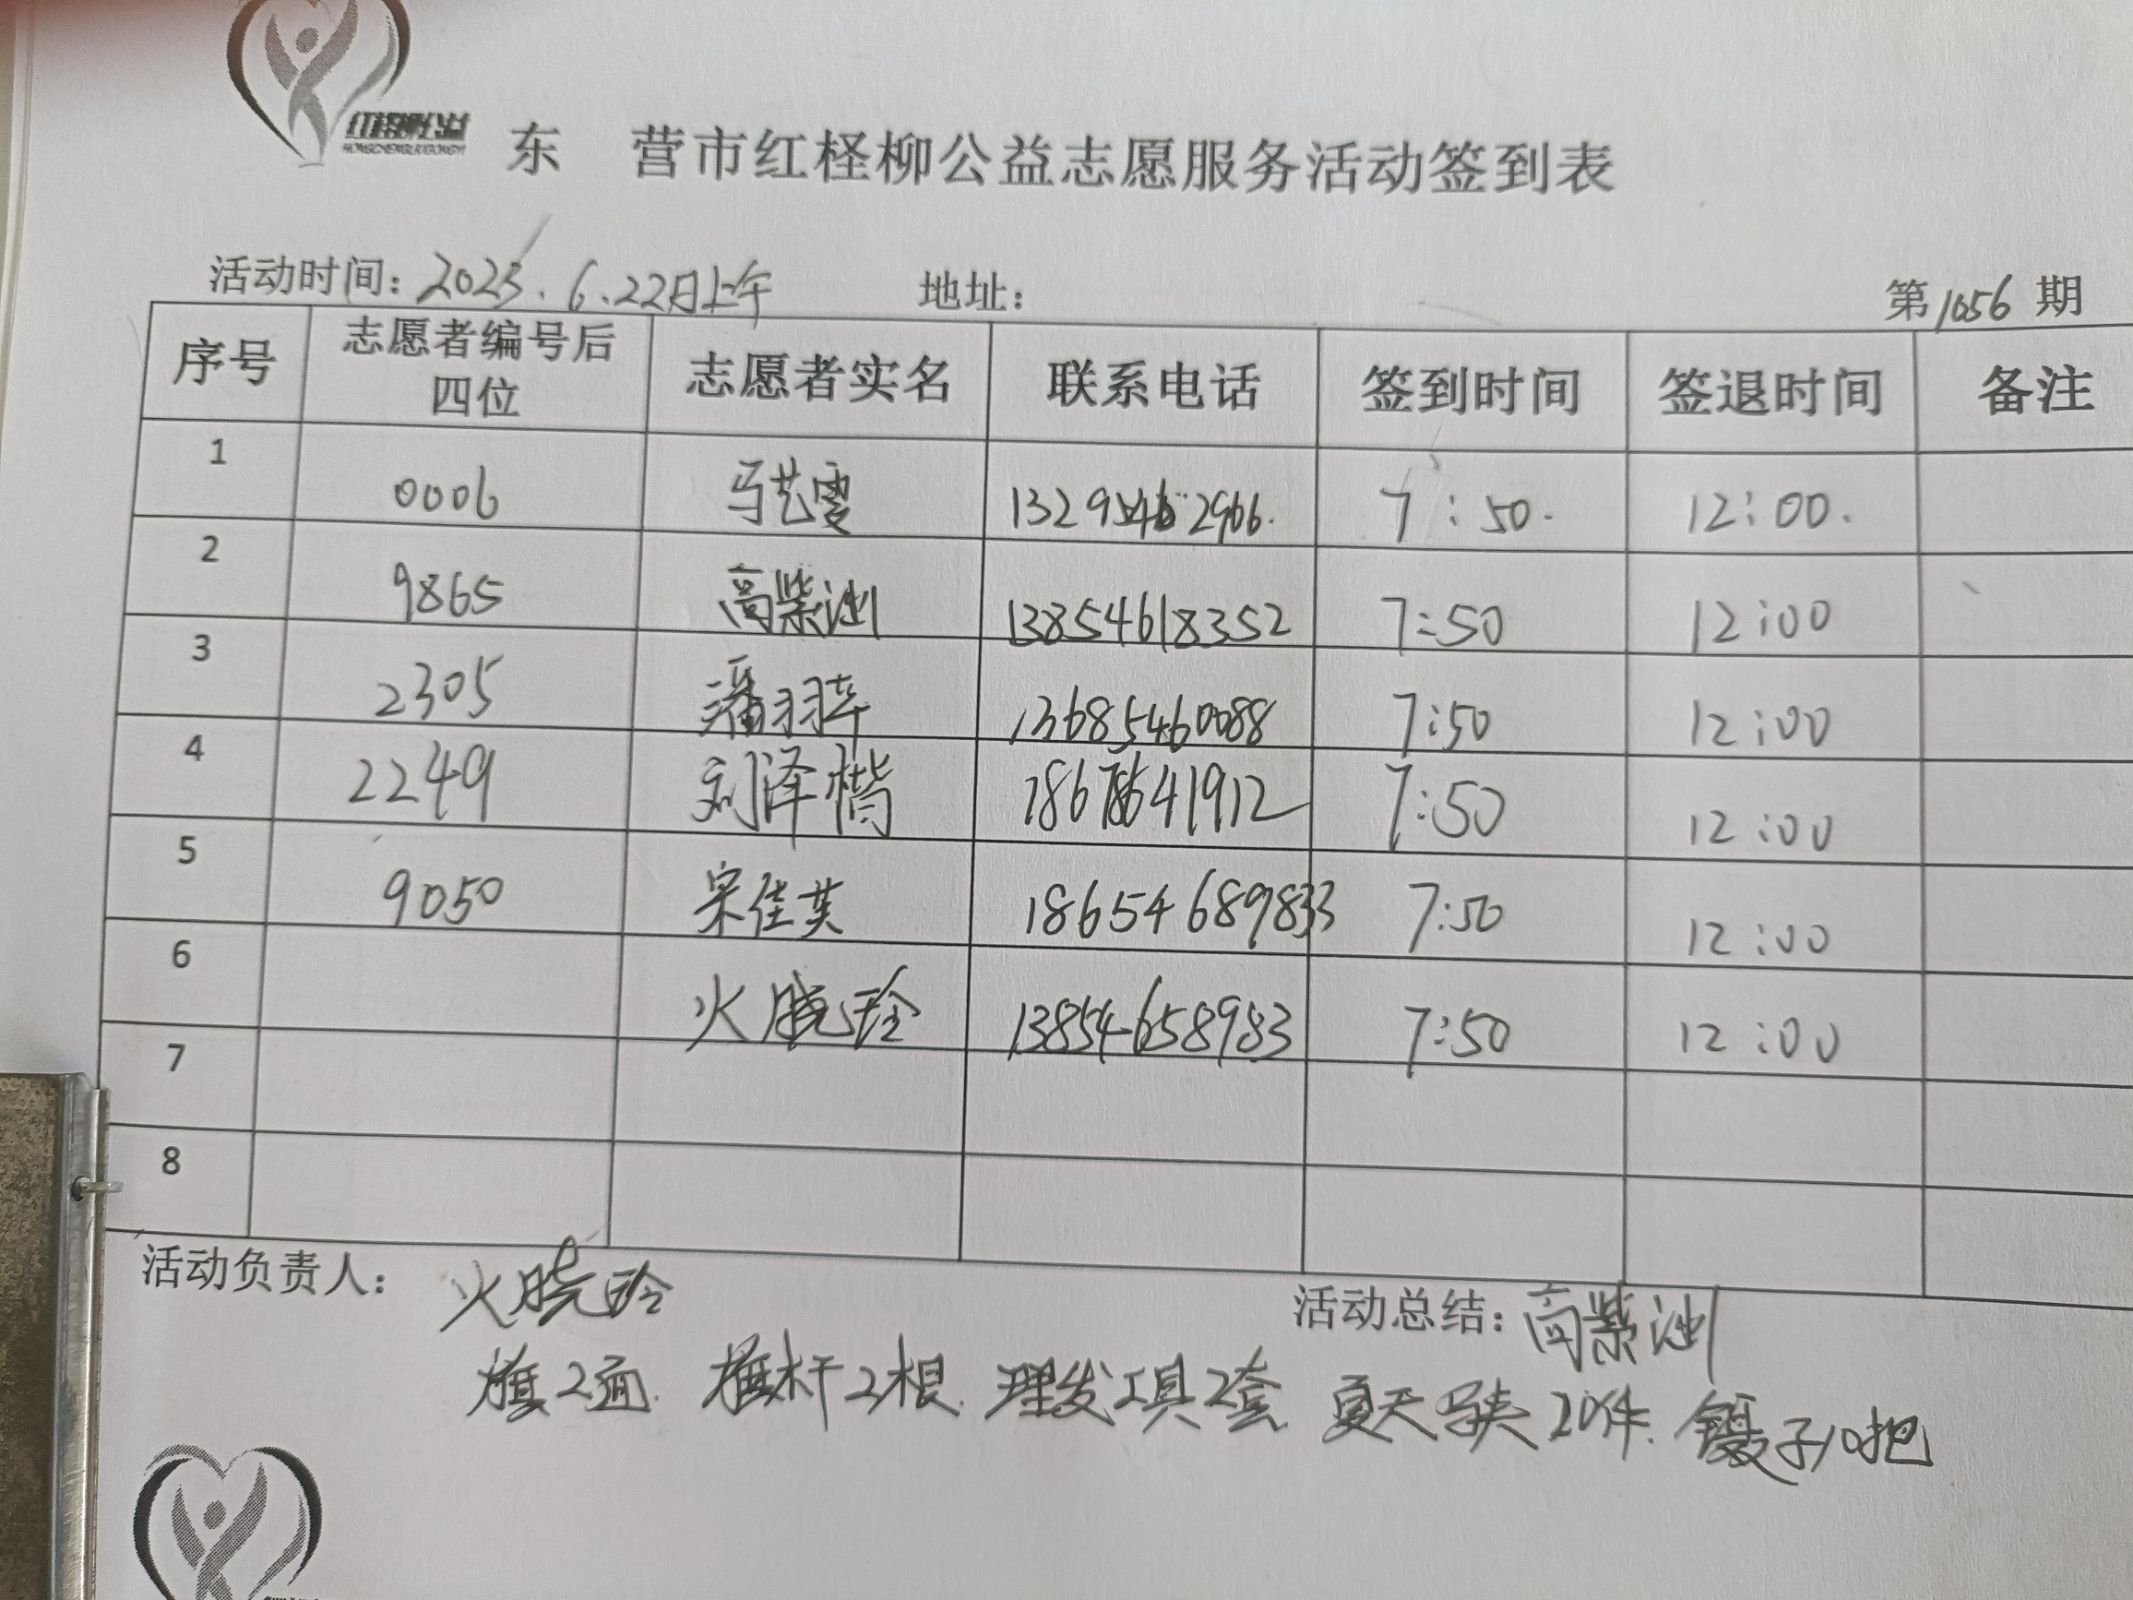 红柽柳公益
东 营市红柽柳公益志愿服务活动签到表
活动时间：2023.6.22日上午 地址： 第1056期
序号 志愿者编号后四位 志愿者实名 联系电话 签到时间 签退时间 备注
1 0006 马艺雯 7:50. 12:00.
2 9865 高紫渊 13854618352 7:50 12:00
3 2305 潘羽华 13685460088 7:50 12:00
4 2249 刘泽楷 18678641912 7:50 12:00
5 9050 宋佳英 18654689833 7:50 12:00
6 火晓玲 13854658983 7:50 12:00
7
8
活动负责人：火晓玲 活动总结：高紫渊
旗2面. 旗杆2根. 理发工具2套. 夏天马夹20件. 镊子10把